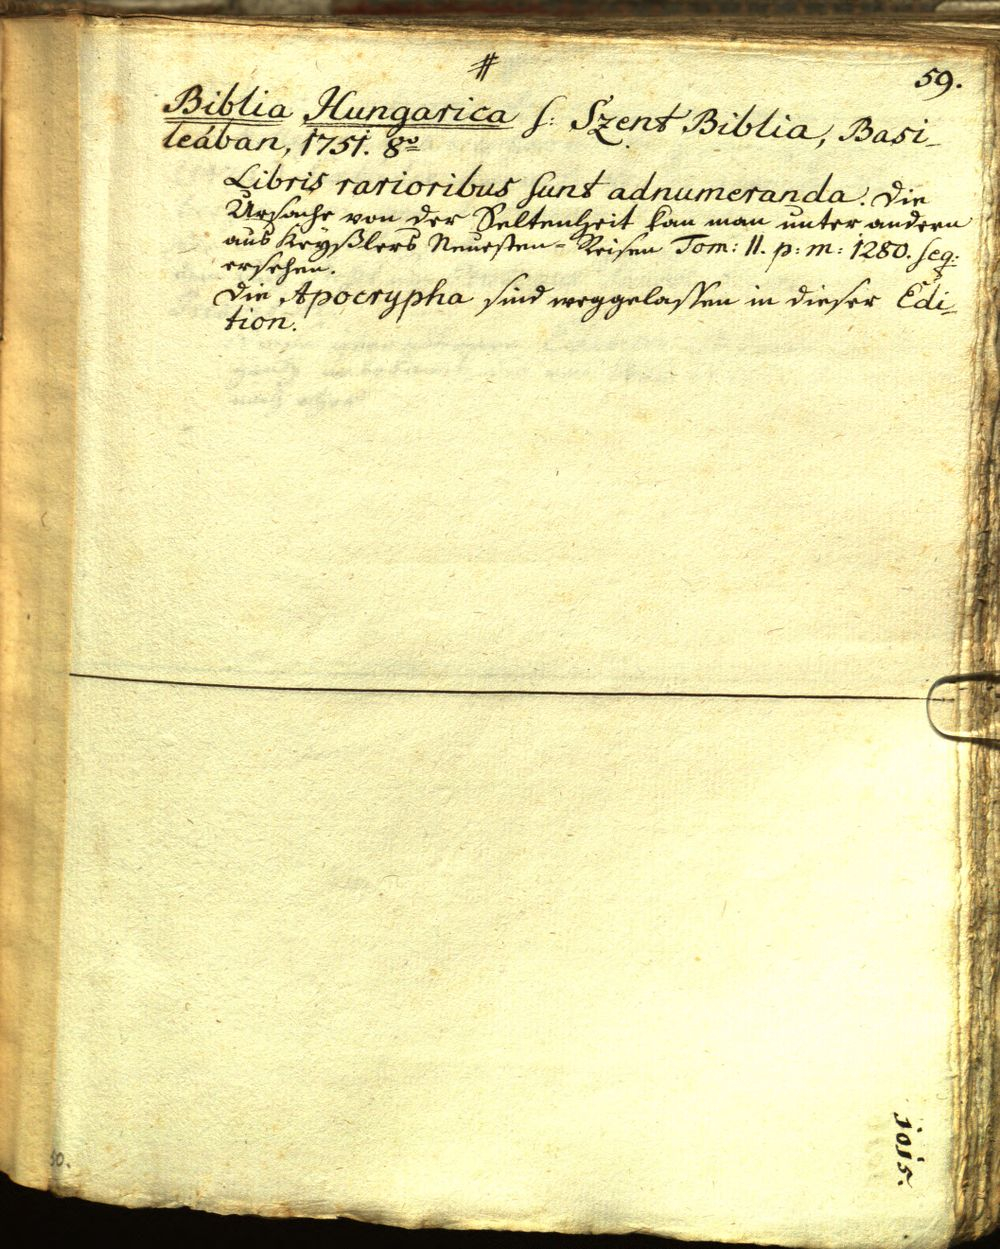 #
59.
Biblia Hungarica s: Szent Biblia, Basi-
leában, 1751. 8º
Libris rarioribus sunt adnumeranda. Die
Ursache von der Seltenheit kan man unter andern
aus Keyßlers Neuesten-Reisen Tom: II. p: m: 1280. seq:
ersehen.
Die Apocrypha sind weggelassen in dieser Edi-
tion.
1015.
50.